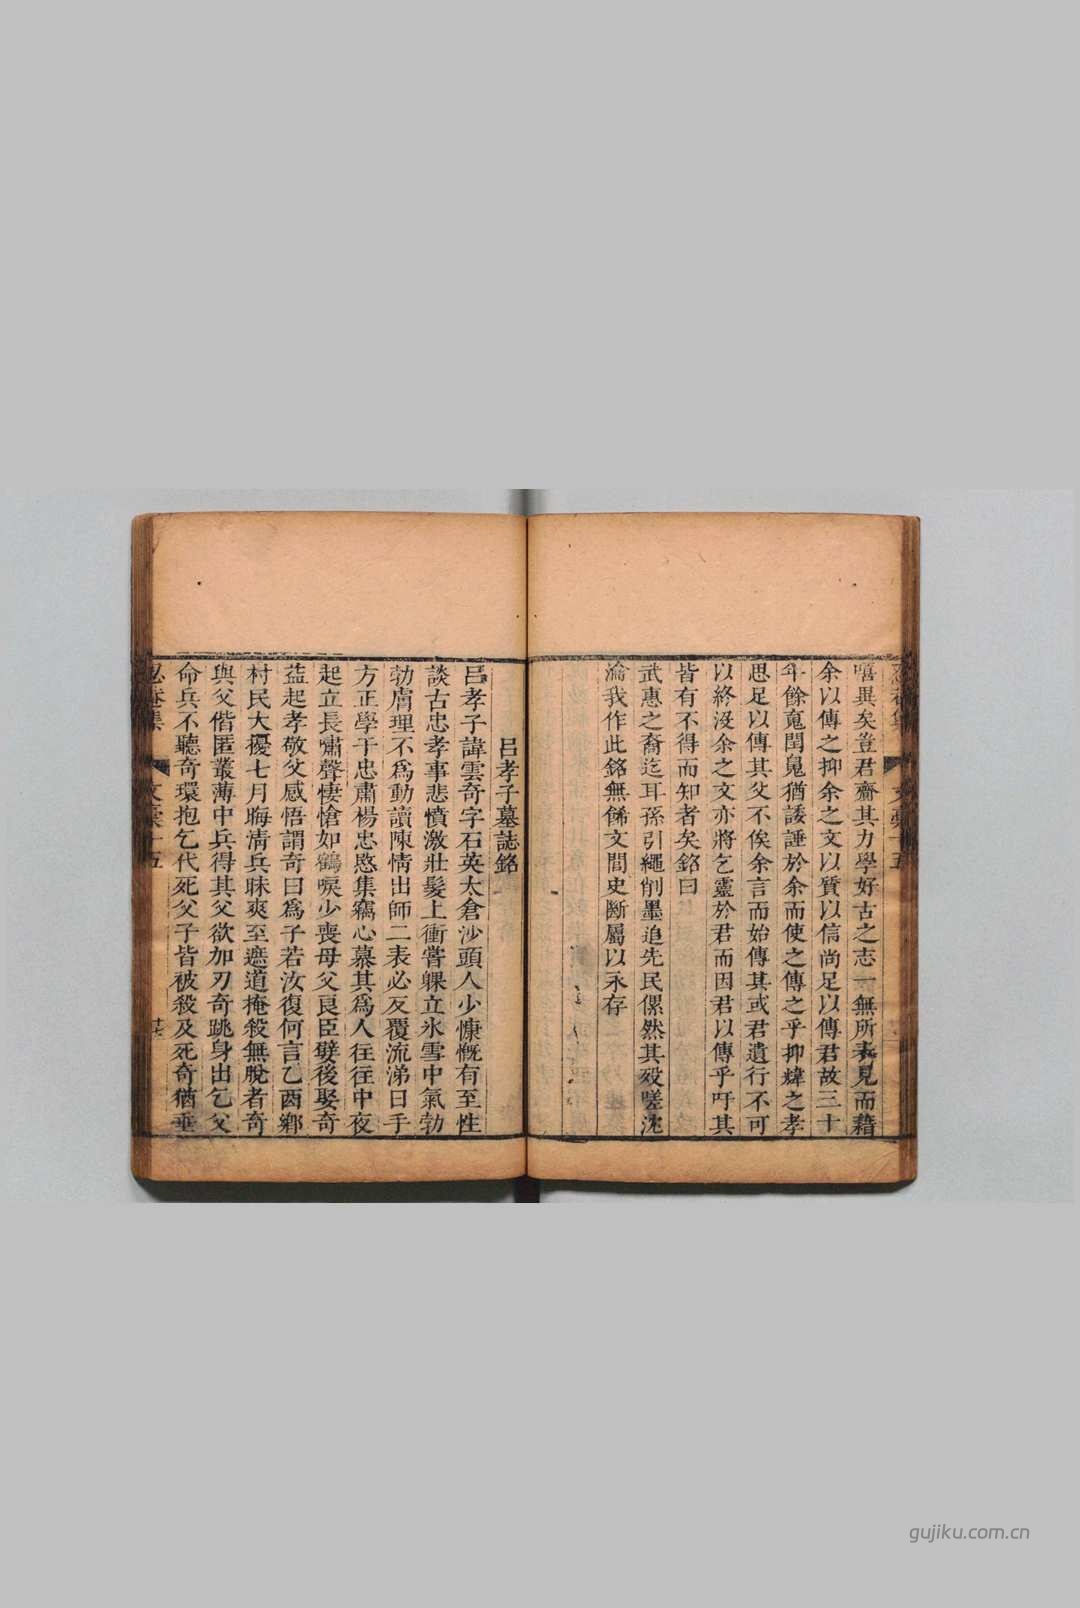 嘻異矣豈君齋其力學好古之志一無所表見而藉
余以傳之抑余之文以質以信尚足以傳君故三十
年餘寃閏鬼猶諉諈於余而使之傳之乎抑煒之孝
思足以傳其父不俟余言而始傳其或君遺行不可
以終沒余之文亦將乞靈於君而因君以傳乎吁其
皆有不得而知者矣銘曰
武惠之裔迄耳孫引繩削墨追先民傫然其歿嗟沈
淪我作此銘無餙文間史斷屬以永存
呂孝子墓誌銘
呂孝子諱雲奇字石英太倉沙頭人少慷慨有至性
談古忠孝事悲憤激壯髮上衝嘗躶立氷雪中氣勃
勃膚理不為動讀陳情出師二表必反覆流涕日手
方正學于忠肅楊忠愍集竊心慕其為人往往中夜
起立長嘯聲悽愴如鶴唳少喪母父良臣嬖後娶奇
益起孝敬父感悟謂奇曰為子若汝復何言乙酉鄉
村民大擾七月晦淸兵昧爽至遮道掩殺無脫者奇
與父偕匿叢薄中兵得其父欲加刃奇跳身出乞父
命兵不聽奇環抱乞代死父子皆被殺及死奇猶垂
忍菴集
文稾十五
gujiku.com.cn